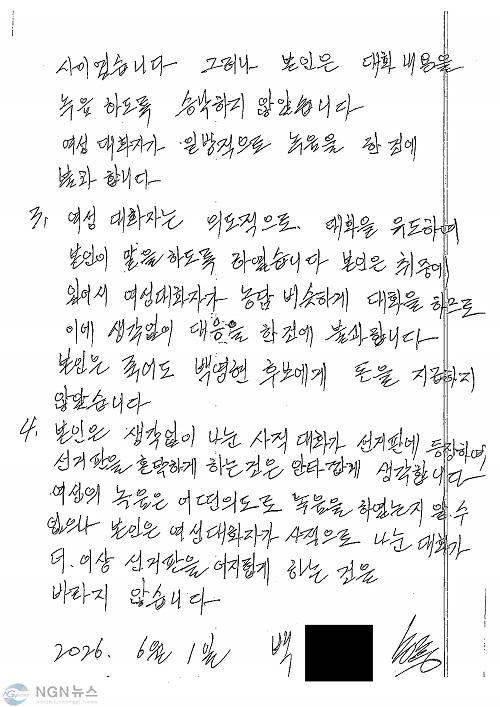 사이였습니다 그러나 본인은 대화 내용을
녹음 하도록 승낙하지 않았습니다
여성 대화자가 일방적으로 녹음을 한 것에
불과 합니다
3, 여성 대화자는 의도적으로. 대화을 유도하여
본인이 말을 하도록 하였습니다 본인은 취중에
있어서 여성대화자가 농담 비슷하게 대화을 하므로
이에 생각없이 대응을 한것에 불과합니다
본인은 죽어도 백영현 후보에게 돈을 지급하지
않았습니다
4, 본인은 생각없이 나눈 사적 대화가 선거판에 등장하여
선거판을 혼탁하게 하는것은 안타깝게 생각합니다
여성의 녹음은 어떤의도로 녹음을 하였는지 알 수
없으나 본인은 여성대화자가 사적으로 나눈 대화가
더.이상 선거판을 어지럽게 하는 것을
바라지 않습니다
2026. 6월 1일 백
NGN뉴스